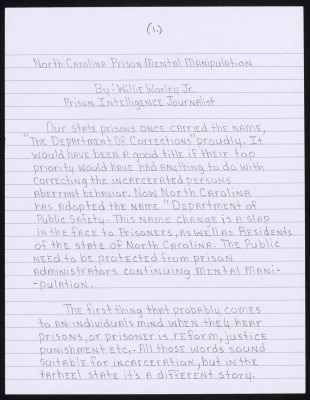 (1.)
North Carolina Prison Mental Manipulation
By: Willie Worley Jr.
Prison Intelligence Journalist
Our state prisons once carried the name,
"The Department Of Corrections" proudly. It
would have been a good title if their top
priority would have had anything to do with
correcting the incarcerated persons
aberrant behavior. Now North Carolina
has adopted the name "Department of
Public Safety. This name change is a slap
in the face to Prisoners, as well as Residents
of the state of North Carolina. The Public
need to be protected from prison
administrators continuing mental mani-
-pulation.
The first thing that probably comes
to an individuals mind when they hear
prisons, or prisoner is reform, justice
punishment etc,. All those words sound
suitable for incarceration, but in the
tarheel state it's a different story.